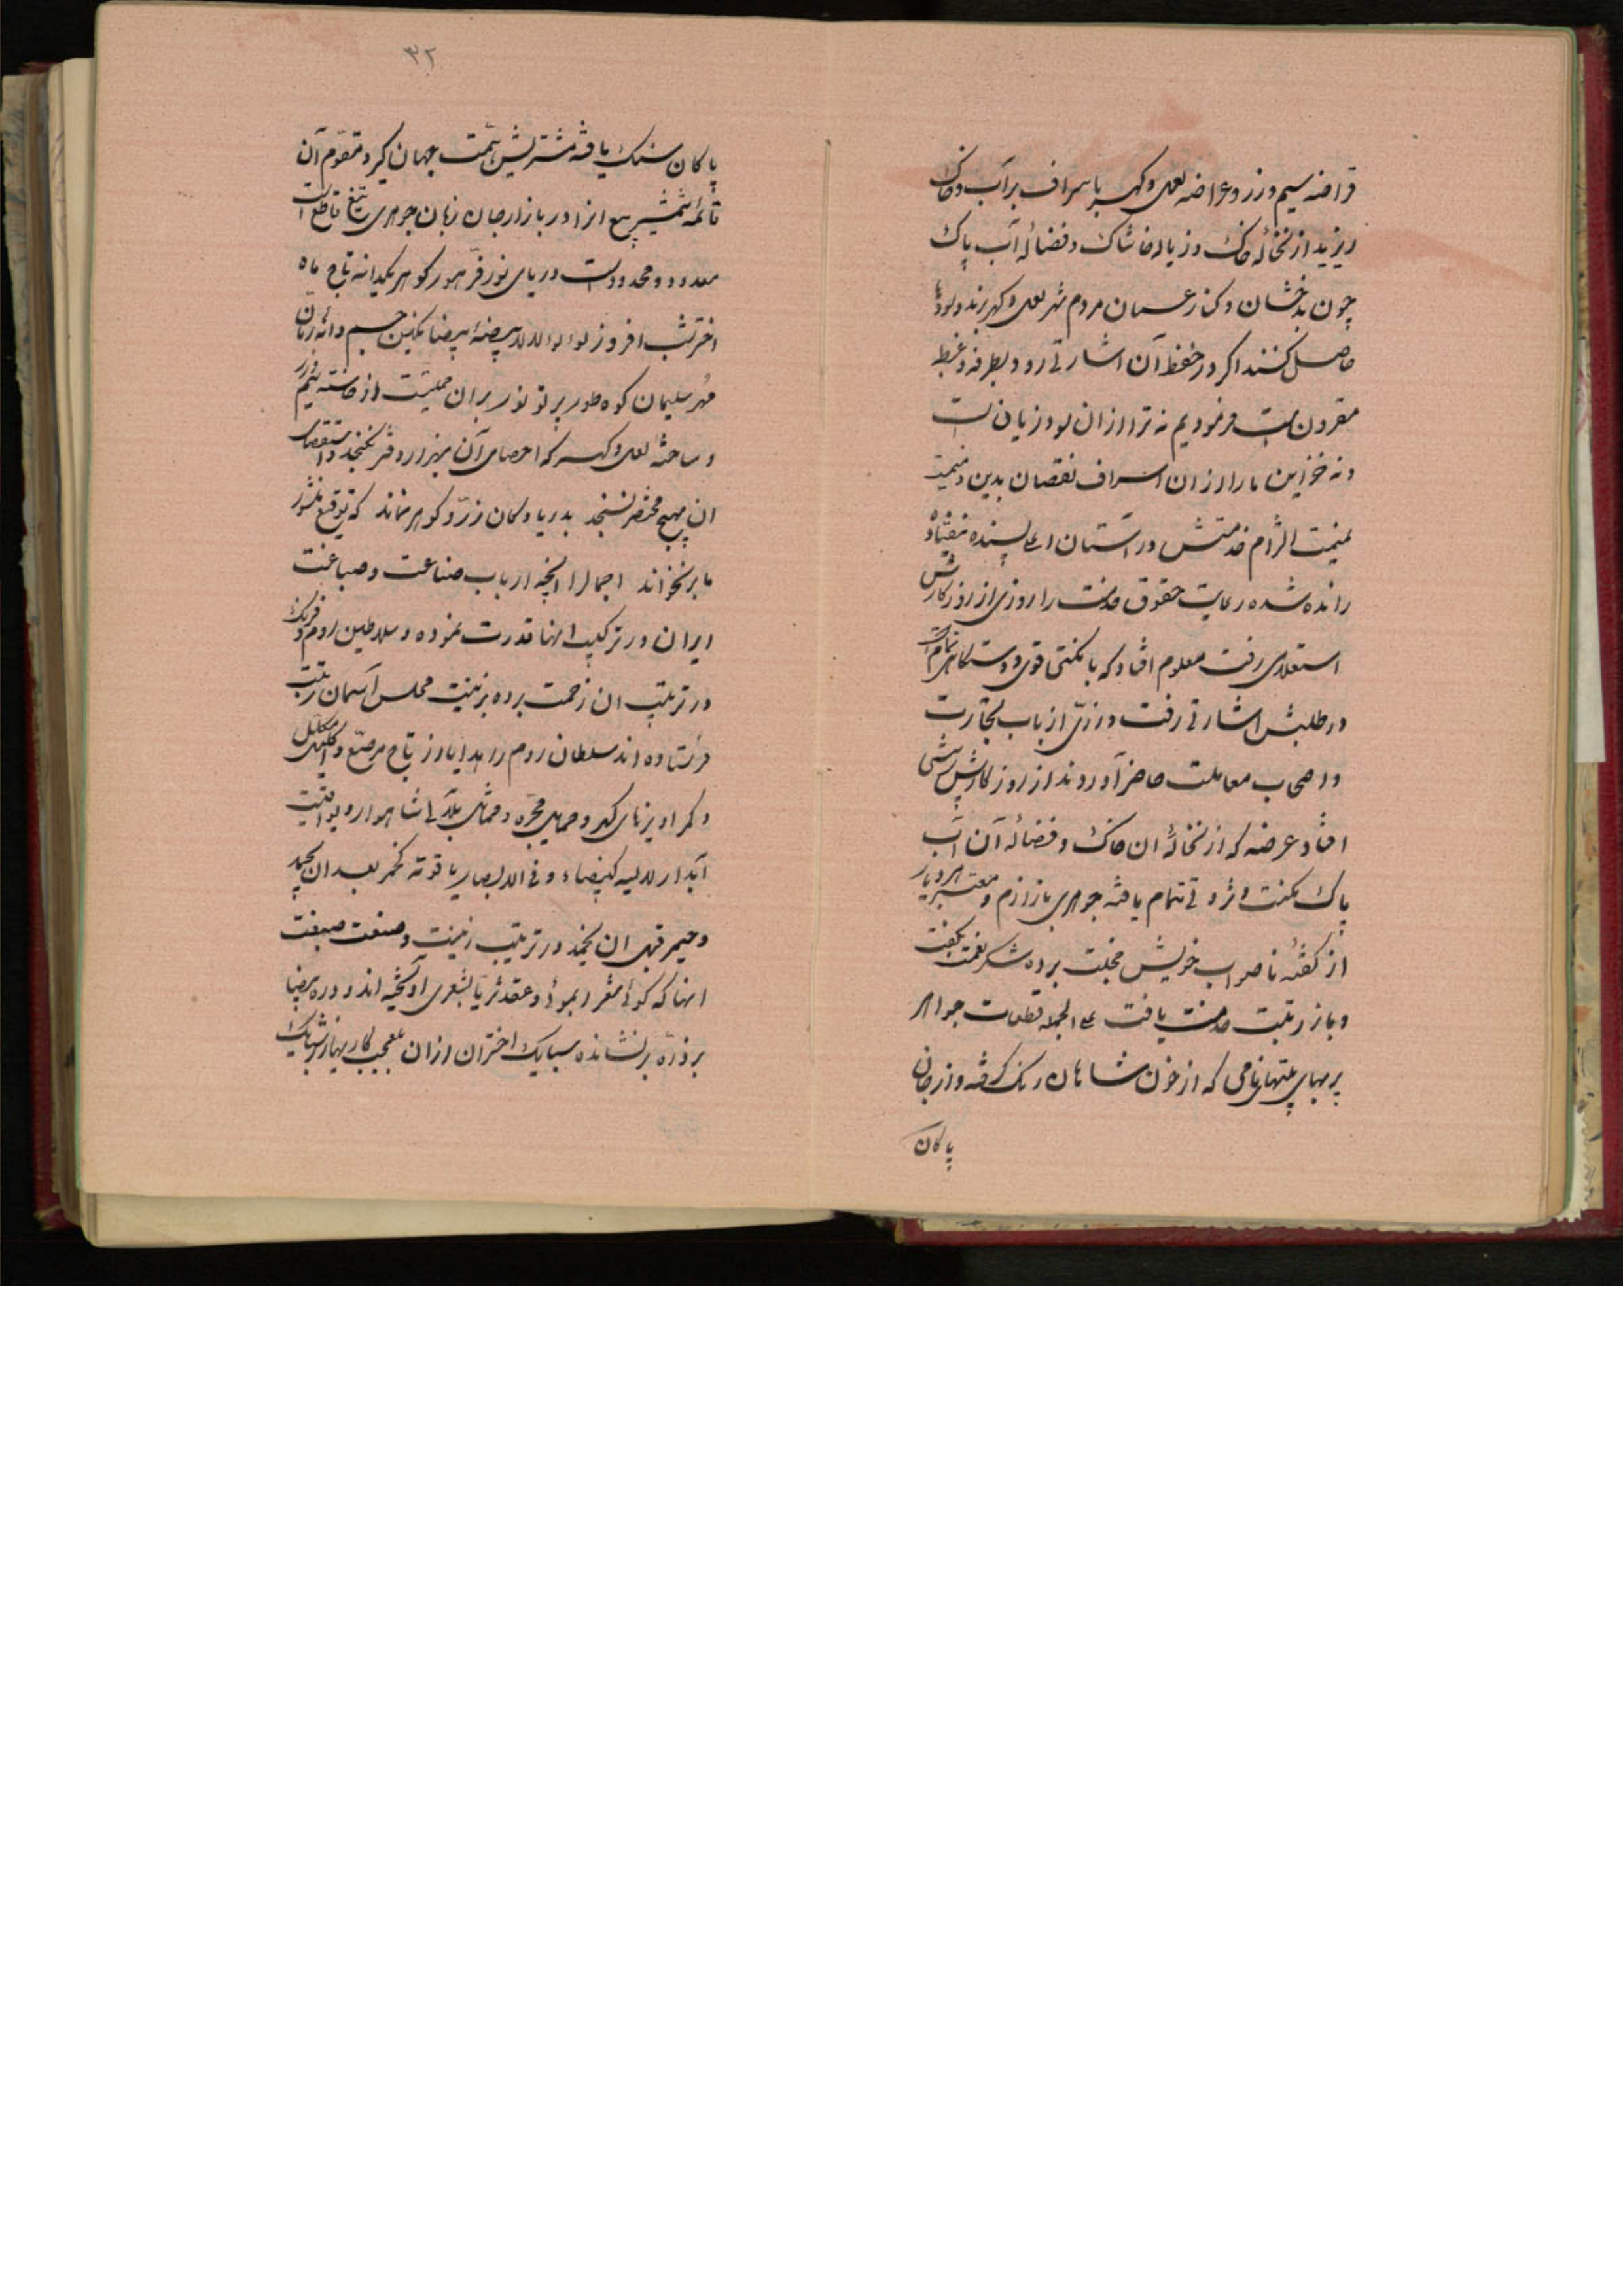 قراضه سیم و زر و عراضه لعل و گهر باسراف بر آب و خاک
ریزید از نخاله خاک و زباله خاشاک و فضاله آب پاک
چون بدخشان و کنار عمان مردم شهر لعل و گهر برند و سودها
حاصل کنند اکر در حفظ آن اشارتی رود بطرفه و غبط
مقرون است فرمودیم نه ترا ازان سود و زیانست
و نه خزاین ما را ازان اسراف نقصان بدین
خدمتش در آستان اعلی پسنده نیفتاد
رانده شد رعایت حقوق خدمت را روزی از روزکارش
استعلامی رفت معلوم افتاد که با مکنتی قوی و دستگاهی تمام
در طلبش اشارتی رفت و زی ارباب تجارت
و اصحاب معاملت حاضر آوردند از روزکارش پرسشی
افتاد عرضه که از نخاله ان خاک و فضاله آن آب
پاک مکنت و ثروتی تمام یافته جوهری بازارم و معتبر هر دیار
از گفته ناصواب خویش خجلت برده شکر نعمت بگفت
و باز رتبت خدمت یافت علی الجمله قطعات جواهر
پر بهای نامی که از خون شاهان رنک گرفته و از جان
پاکان
۳۲
پاکان سنک یافته مشتریش همت جهان گیر و مقوم آن
قائمه شمشیر بیع انرا در بازار جان زبان جوهری تیغ قاطع است
معدود و محدود است دریای نور فر هور کوهر یکدانه تاج ماه
اختر شب افروز لوء لوء لالا بیضه بیضا نکین جم دانه رمان
مهر سلیمان کوه طور پرتو نور بران از خاسته سیم و زر
و ساخته لعل و گهر که احصای آن بهزار دفتر نکنجد و استقصای
ان بهیچ مختصر نسنجد بدریا و کان زر و کوهر نماند که توقیع منشور
ما بر نخواند اجمالا انچه ارباب صناعت و صیاغت
ایران در ترکیب انها قدرت نموده و سلاطین روم و فرنک
در ترتیب ان زحمت برده بزینت مجلس آسمان رتبت
فرستاده اند سلطان روم را هدایا و از تاج مرصع و اکلیل مکلل
و کمر اویزهای و حمایل مجره و مماثل بلآلی شاهوار و یواقیت
آبدار لالیه کبیضاء و فی الابصار یاقوته کجمر بعد ان یخمد
و جمر قبل ان یخمد در ترتیب زینت و صنعت صبغت
انها که گوئی شعرا بموئی و عقد ثریا بشعری آویخته اند و دره بیضا
بر ذره برنشانده سبایک اختران ازان بلعجب کاریها